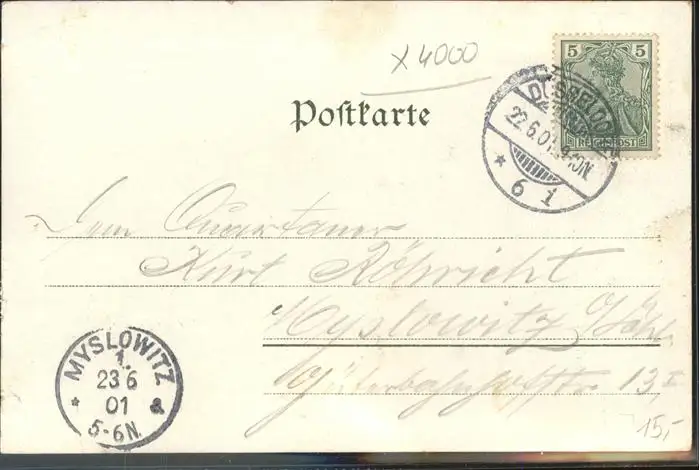 x 4000
5 5
REICHSPOST
Poſtkarte
DÜSSELDORF
22.6.01. 9-10N.
* 6 1
Dem Quartaner
Kurt Röhricht
Myslowitz
Güterbahnhofstr 13, I
MYSLOWITZ
1.
23 6
01
* a
5-6N.
15,-